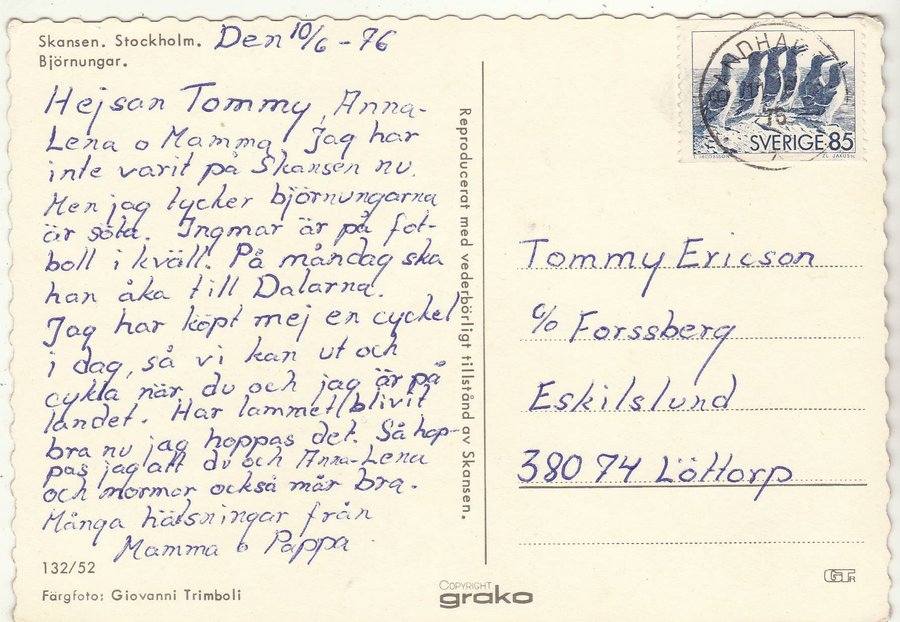 Skansen. Stockholm.
Björnungar.
Den 10/6 - 76
Hejsan Tommy, Anna-
Lena o Mamma. Jag har
inte varit på Skansen nu.
Men jag tycker björnungarna
är söta. Ingmar är på fot-
boll i kväll. På måndag ska
han åka till Dalarna.
Jag har köpt mej en cyckel
i dag, så vi kan ut och
cykla när du och jag är på
landet. Har lammet blivit
bra nu jag hoppas det. Så hop-
pas jag att du och Anna-Lena
och mormor också mår bra.
Många hälsningar från
Mamma o Pappa
132/52
Färgfoto: Giovanni Trimboli
Reproducerat med vederbörligt tillstånd av Skansen.
COPYRIGHT
grako
SVERIGE 85
76
Tommy Ericson
c/o Forssberg
Eskilslund
380 74 Löttorp